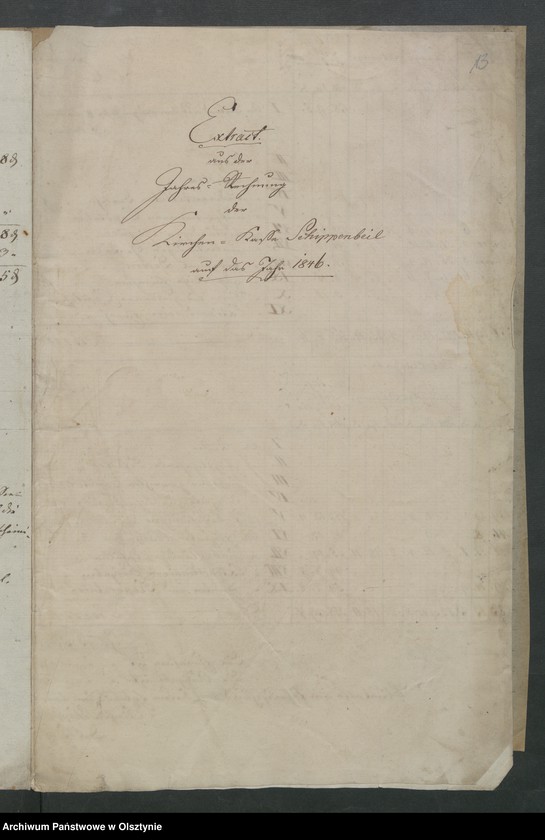 15
Extract.
aus der
Jahres-Rechnung
der
Kirchen-Kasse Schippenbeil
auf das Jahr 1846.
Archiwum Państwowe w Olsztynie